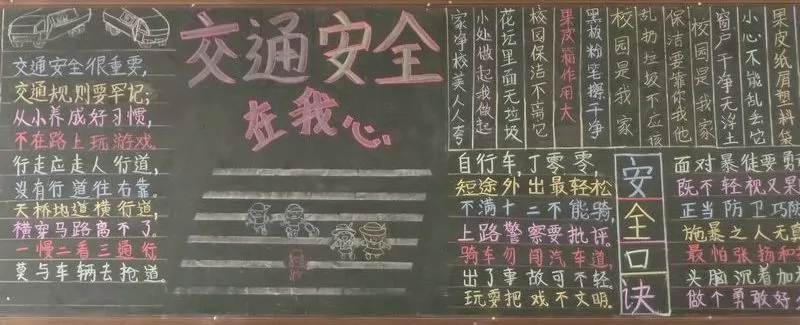 交通安全
在我心
交通安全很重要,
交通规则要牢记;
从小养成好习惯,
不在路上玩游戏.
行走应走人行道,
没有行道往右靠.
天桥地道横行道,
横穿马路离不了.
一慢二看三通行
莫与车辆去抢道.
果皮纸屑塑料袋
小心不能乱丢它
窗户干净无浮土
校园是我家
保洁要靠你我他
乱扔垃圾不应该
校园是我家
黑板粉笔擦干净
果皮箱作用大
校园保洁不离它
花坛里面无垃圾
小处做起我做起
家净校美人人夸
自行车,丁零零,
短途外出最轻松
不满十二不能骑,
上路警察要批评。
骑车勿闯汽车道,
出了事故可不轻.
玩耍把戏不文明.
安全口诀
面对暴徒要勇
既不轻视又果
正当防卫巧防
施暴之人无真
最怕张扬和
头脑沉着加
做个勇敢好